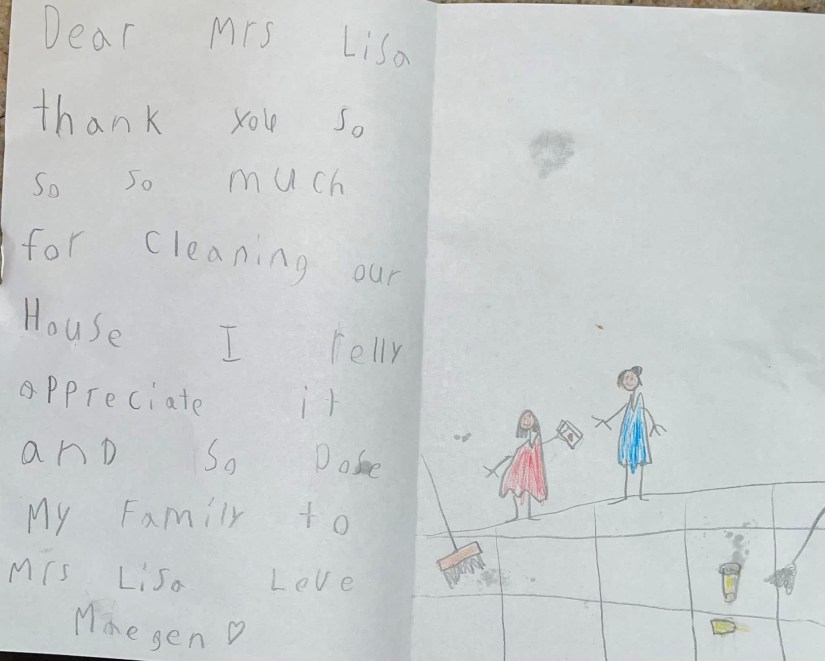 Dear Mrs Lisa
thank you so
so so much
for Cleaning our
House I relly
appreciate it
anD so Dose
My Family to
Mrs Lisa Love
Maegen ♡